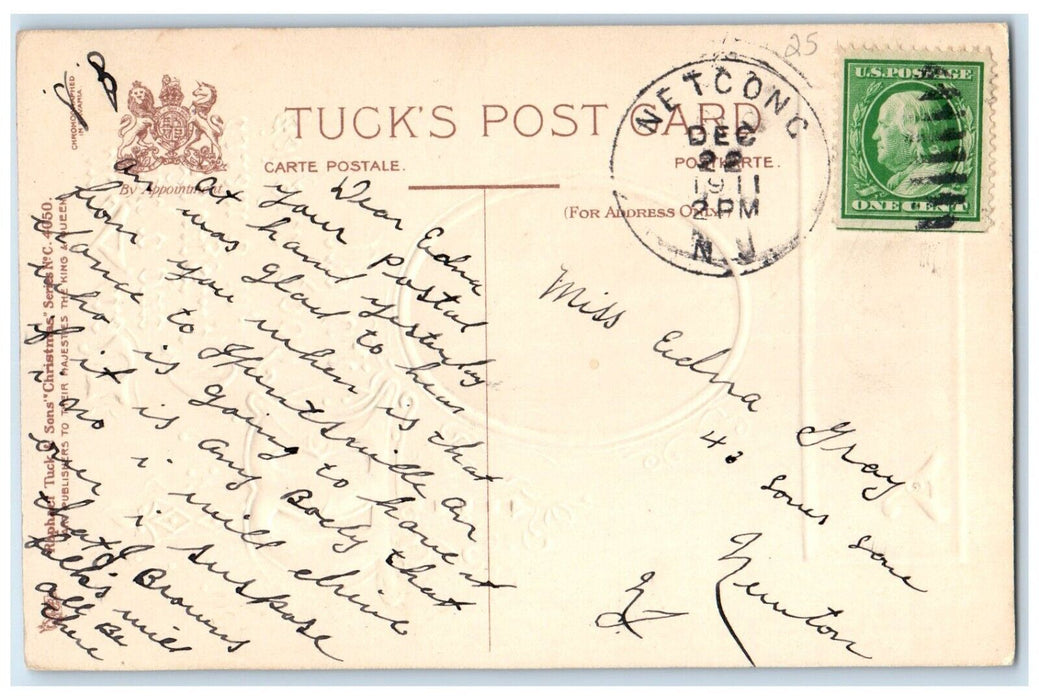 25
J B
CHROMOGRAPHED
IN
By Appointment
TUCK'S POST CARD
CARTE POSTALE.
POSTKARTE.
(FOR ADDRESS ONLY)
NETCONG
DEC
22
1911
2 PM
N. J.
U.S. POSTAGE
ONE CENT
Raphael Tuck & Sons' "Christmas" Series No C. 4050.
ART PUBLISHERS TO THEIR MAJESTIES THE KING & QUEEN
Dear Edna
your postal
at hand yesterday
an was glad to hear
from you when is that
dance to Huntsville an
who is going to have it
if it is any Body that
i no i will drive
over i suspose
that Browns
folks will
all Be
there
Miss Edna Gray
40 sous sone
Newton
N J